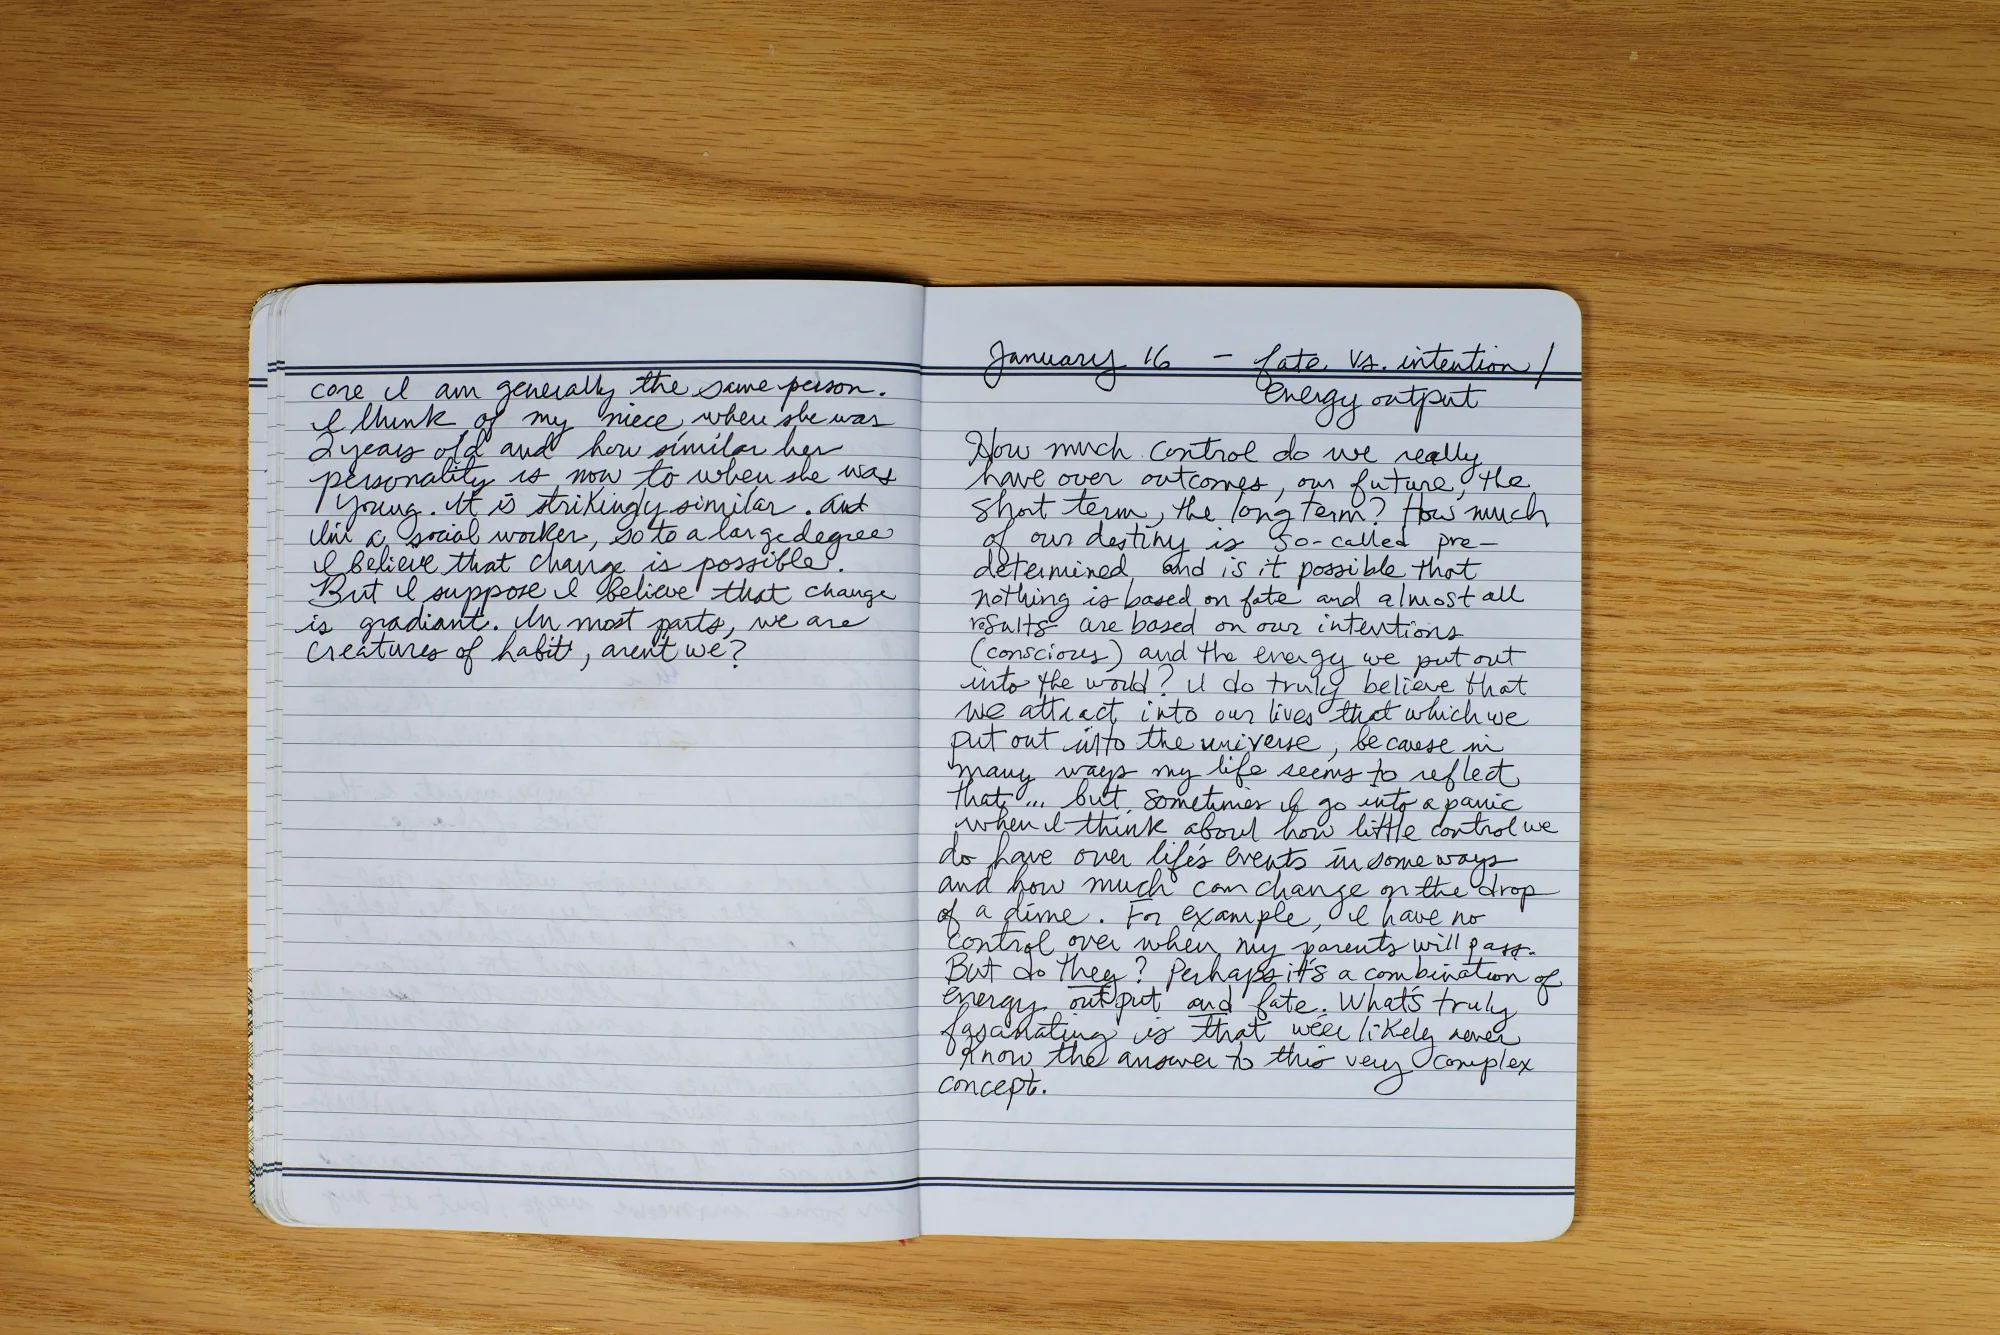 core I am generally the same person.
I think of my niece when she was
2 years old and how similar her
personality is now to when she was
young. It is strikingly similar. And
I'm a social worker, so to a large degree
I believe that change is possible.
But I suppose I believe that change
is gradiant. In most parts, we are
creatures of habit, aren't we?
January 16 - fate vs. intention /
energy output
How much control do we really
have over outcomes, our future, the
short term, the long term? How much
of our destiny is so-called pre-
determined, and is it possible that
nothing is based on fate and almost all
results are based on our intentions
(conscious) and the energy we put out
into the world? I do truly believe that
we attract into our lives that which we
put out into the universe, because in
many ways my life seems to reflect
that... but, sometimes I go into a panic
when I think about how little control we
do have over life's events in some ways
and how much can change on the drop
of a dime. For example, I have no
control over when my parents will pass.
But do they? Perhaps it's a combination of
energy output and fate. What's truly
fascinating is that we'll likely never
know the answer to this very complex
concept.